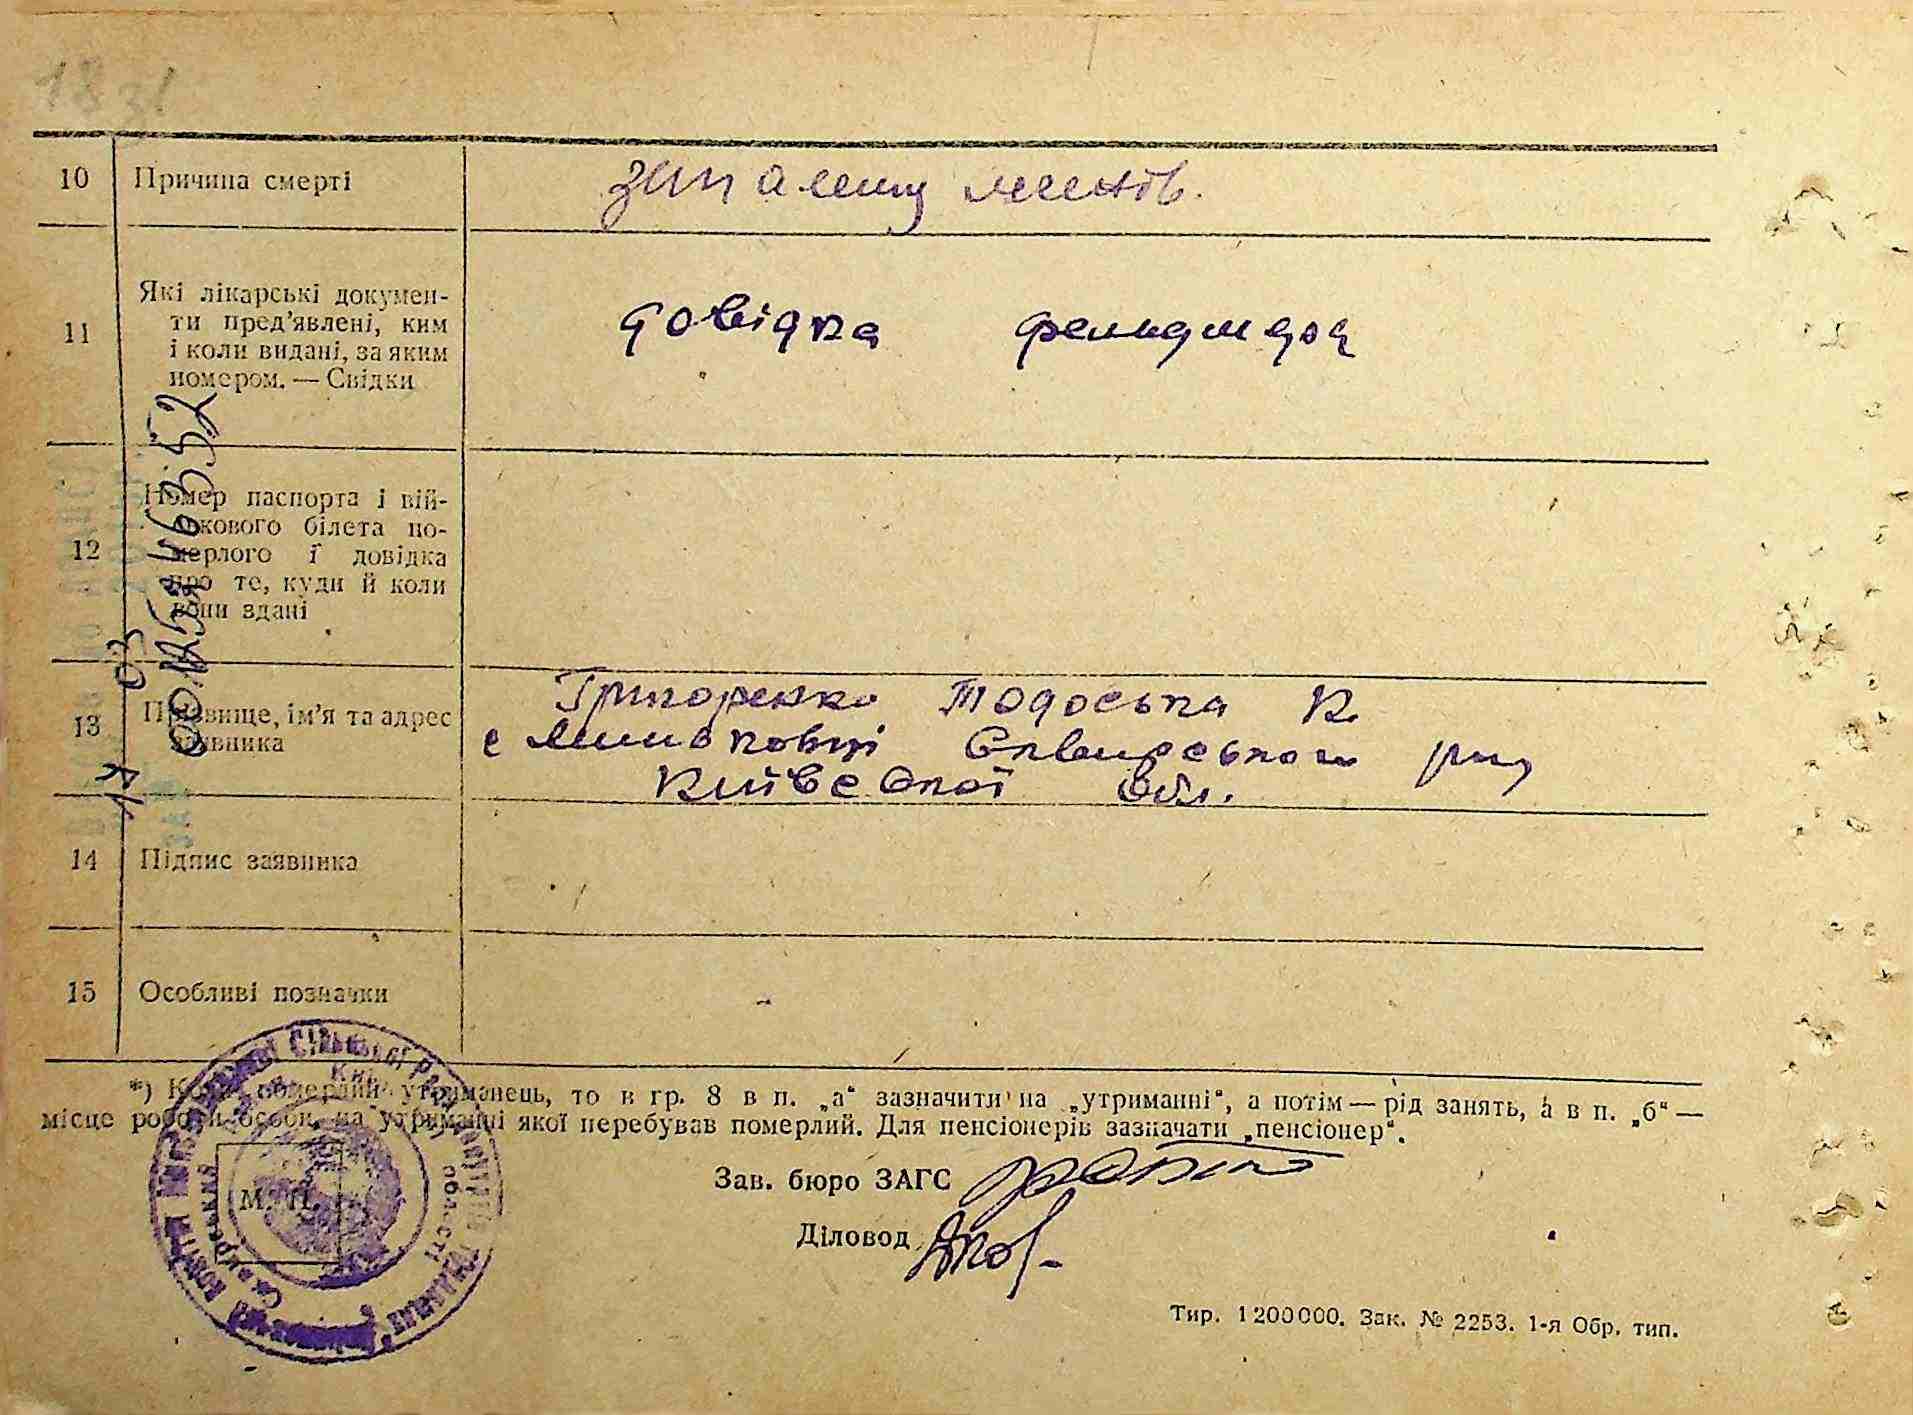 18 зі
10 Причина смерті запаленну легенів.
11 Які лікарські докумен-
ти пред'явлені, ким
і коли видані, за яким
номером. — Свідки
довідка фельдшера
12 Номер паспорта і вій-
ськового білета по-
мерлого ї довідка
про те, куди й коли
вони здані
13 Прізвище, ім'я та адрес
заявника
Григоренко Тодоська К.
с Сквирського р-ну
Київської обл.
14 Підпис заявника
15 Особливі позначки
*) Коли померлий утриманець, то в гр. 8 в п. „а“ зазначити на „утриманні“, а потім — рід занять, а в п. „б“ —
місце роботи особи, на утриманні якої перебував померлий. Для пенсіонерів зазначати „пенсіонер“.
М. П.
Зав. бюро ЗАГС
Діловод
Тир. 1200000. Зак. № 2253. 1-я Обр. тип.